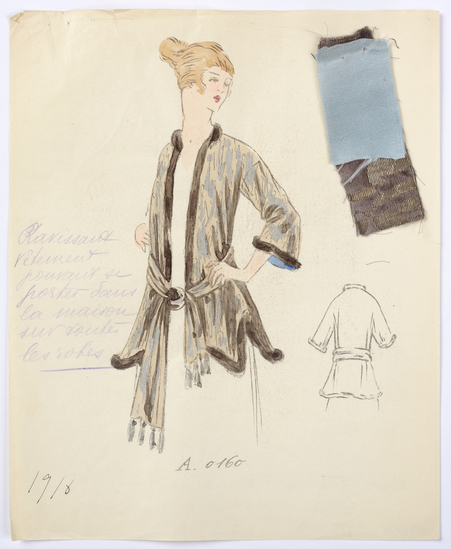 Ravissant
vêtement
pouvant se
porter dans
la maison
sur toutes
les robes
A. 0160
1918